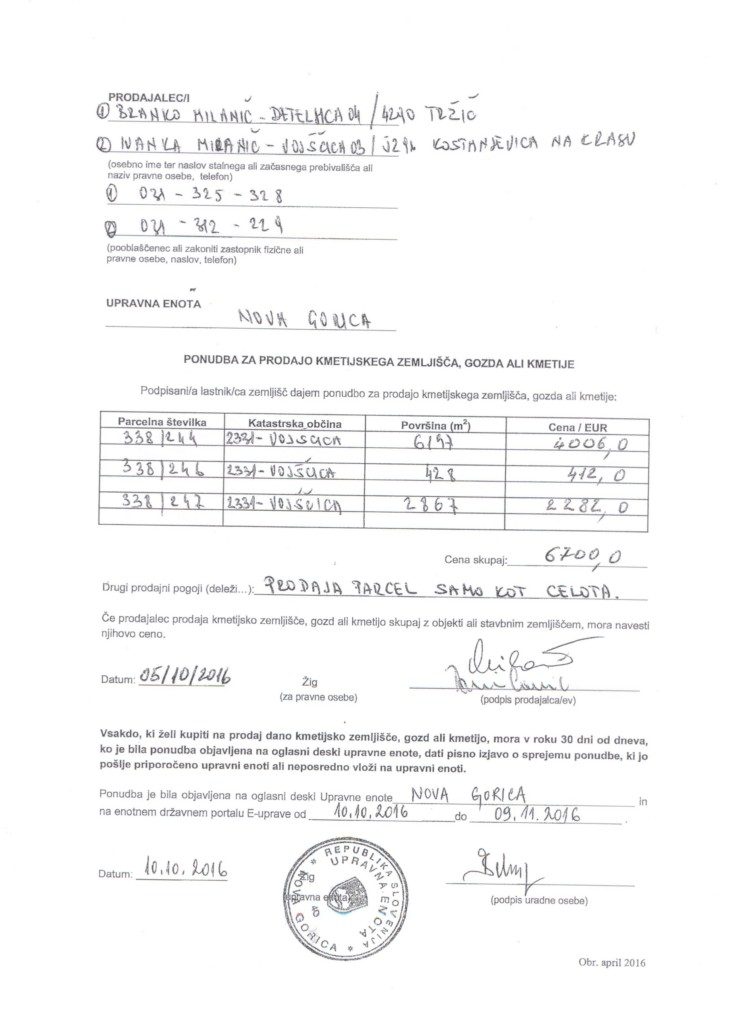 PRODAJALEC/I
① BRANKO MILANIČ - DETELJICA 04 / 4290 TRŽIČ
② IVANKA MIRANIČ - VOJŠČICA 03 / 5296 KOSTANJEVICA NA KRASU
(osebno ime ter naslov stalnega ali začasnega prebivališča ali
naziv pravne osebe, telefon)
① 031 - 325 - 328
② 031 - 312 - 229
(pooblaščenec ali zakoniti zastopnik fizične ali
pravne osebe, naslov, telefon)
UPRAVNA ENOTA
NOVA GORICA
PONUDBA ZA PRODAJO KMETIJSKEGA ZEMLJIŠČA, GOZDA ALI KMETIJE
Podpisani/a lastnik/ca zemljišč dajem ponudbo za prodajo kmetijskega zemljišča, gozda ali kmetije:
Parcelna številka Katastrska občina Površina (m²) Cena / EUR
338/244 2331- VOJŠČICA 6197 4006,0
338/246 2331- VOJŠČICA 428 412,0
338/247 2331- VOJŠČICA 2867 2282,0
Cena skupaj: 6700,0
Drugi prodajni pogoji (deleži...): PRODAJA PARCEL SAMO KOT CELOTA.
Če prodajalec prodaja kmetijsko zemljišče, gozd ali kmetijo skupaj z objekti ali stavbnim zemljiščem, mora navesti
njihovo ceno.
Datum: 05/10/2016
Žig
(za pravne osebe)
(podpis prodajalca/ev)
Vsakdo, ki želi kupiti na prodaj dano kmetijsko zemljišče, gozd ali kmetijo, mora v roku 30 dni od dneva,
ko je bila ponudba objavljena na oglasni deski upravne enote, dati pisno izjavo o sprejemu ponudbe, ki jo
pošlje priporočeno upravni enoti ali neposredno vloži na upravni enoti.
Ponudba je bila objavljena na oglasni deski Upravne enote NOVA GORICA in
na enotnem državnem portalu E-uprave od 10.10.2016 do 09.11.2016.
Datum: 10.10.2016
Žig
upravna enota
REPUBLIKA SLOVENIJA
UPRAVNA ENOTA
NOVA GORICA
(podpis uradne osebe)
Obr. april 2016